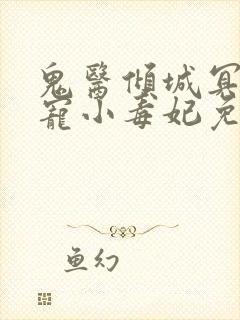 鬼醫傾城冥
寵小毒妃免
鱼幻